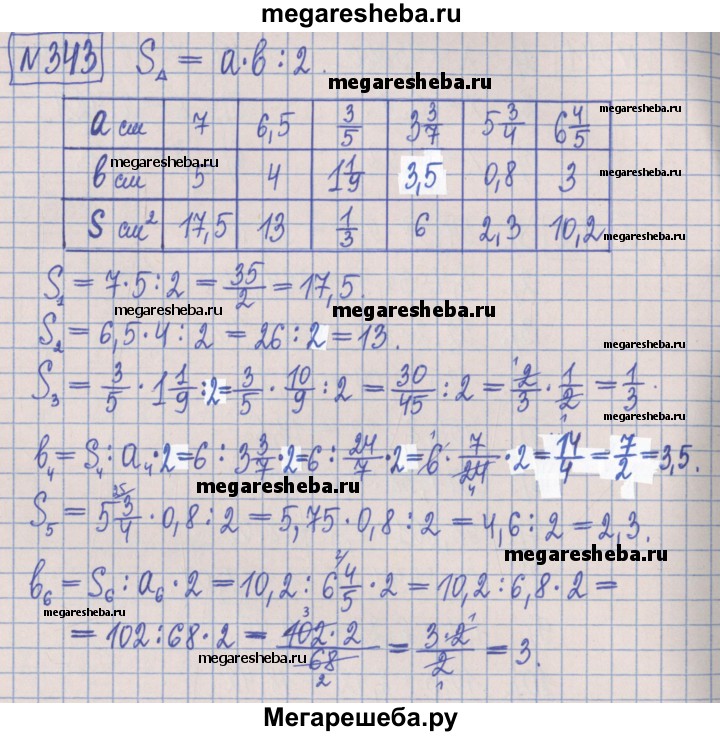 megaresheba.ru
№343 S△ = a·b : 2.
megaresheba.ru
a см 7 6,5 3/5 3 3/7 5 3/4 6 4/5
megaresheba.ru
megaresheba.ru
b см 5 4 1 1/9 3,5 0,8 3
S см² 17,5 13 1/3 6 2,3 10,2
megaresheba.ru
S₁ = 7·5:2 = 35/2 = 17,5.
megaresheba.ru
megaresheba.ru
S₂ = 6,5·4:2 = 26:2 = 13.
megaresheba.ru
S₃ = 3/5 · 1 1/9 :2= 3/5 · 10/9 : 2 = 30/45 : 2 = 2/3 · 1/2 = 1/3.
megaresheba.ru
b₄ = S₄ : a₄·2=6 : 3 3/7·2=6 : 24/7 ·2= 6 · 7/24 ·2=14/4 = 7/2 =3,5.
megaresheba.ru
S₅ = 5 3/4 · 0,8 : 2 = 5,75·0,8 : 2 = 4,6 : 2 = 2,3.
megaresheba.ru
b₆ = S₆ : a₆ · 2 = 10,2 : 6 4/5 · 2 = 10,2 : 6,8 · 2 =
megaresheba.ru
= 102 : 68 · 2 = 102·2/68 = 3·2/2 = 3.
megaresheba.ru
megaresheba.ru
Мегарешеба.ру